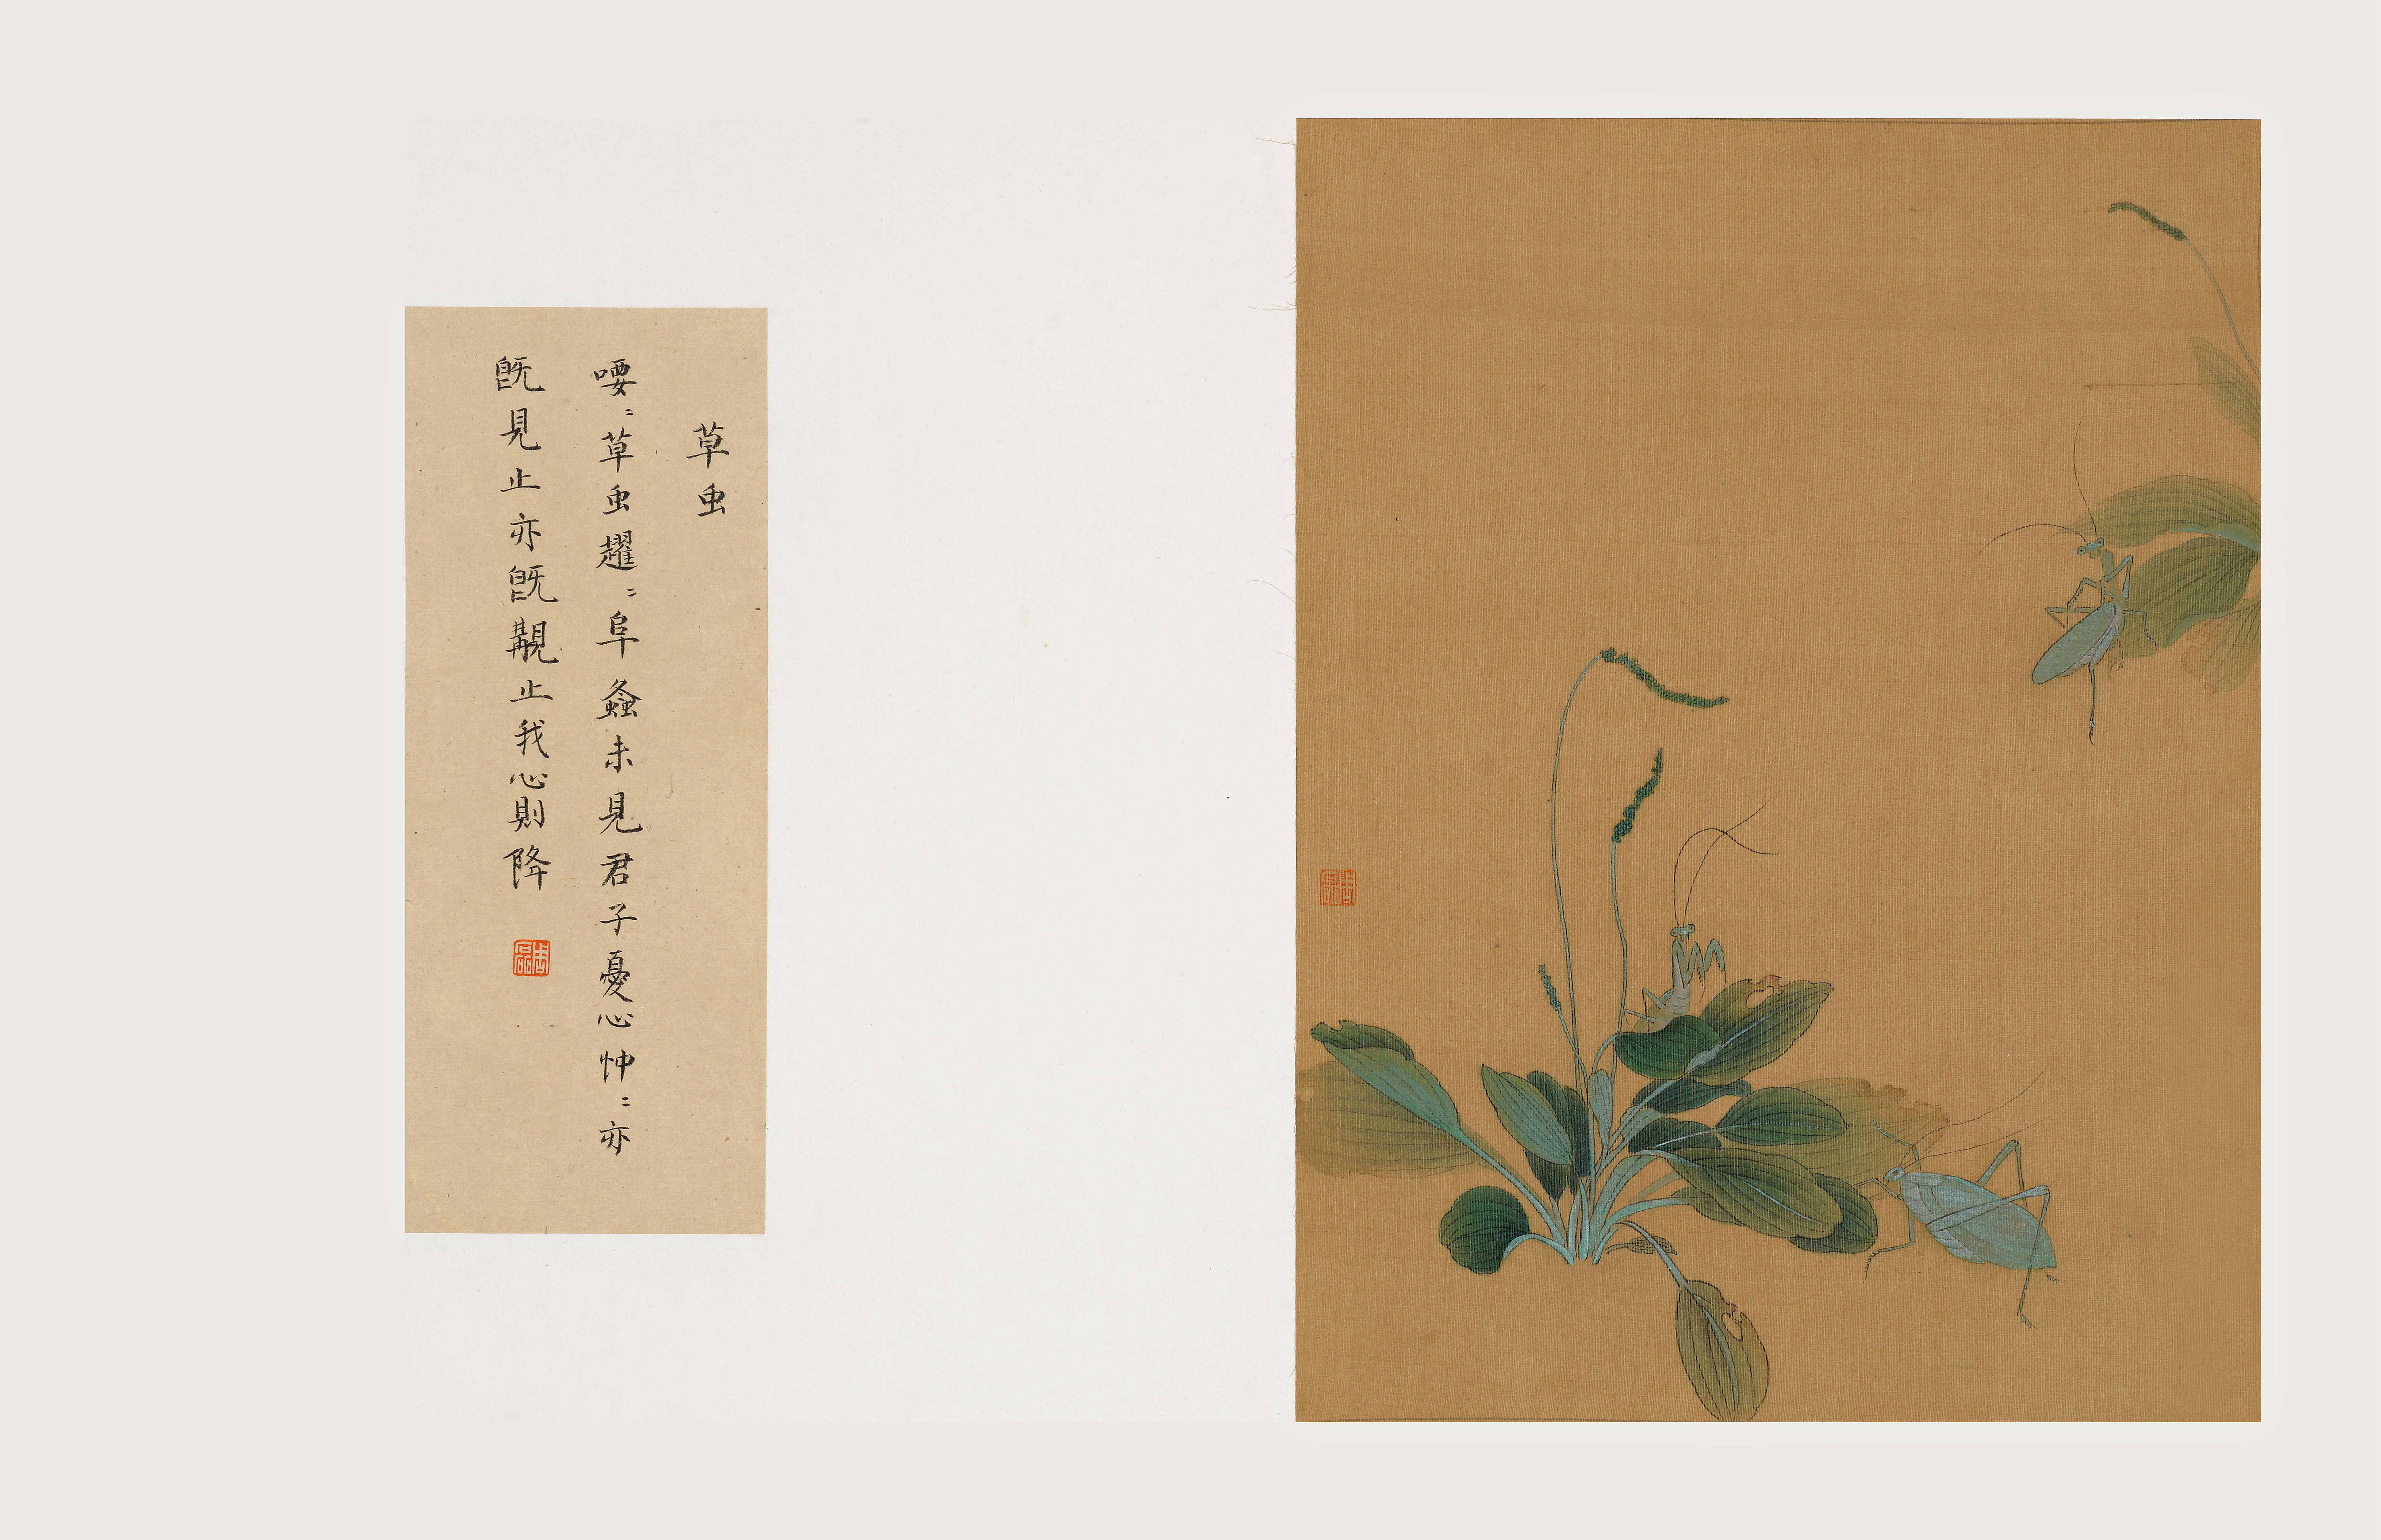 草虫
喓〻草虫趯〻阜螽未見君子憂心忡〻亦
既見止亦既覯止我心則降